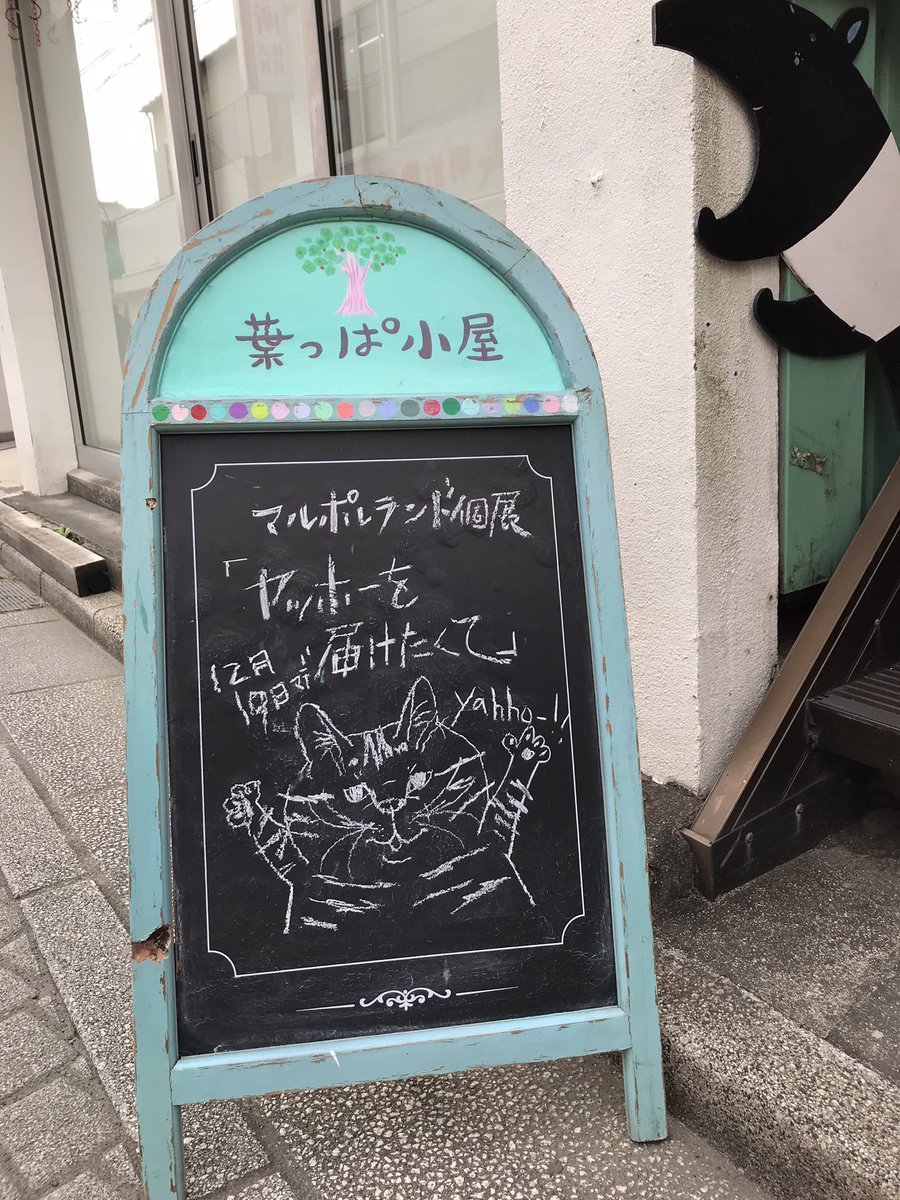 葉っぱ小屋
マルポルランド個展
「ヤッホーを
届けたくて」
12月
19日まで
yahho-!!